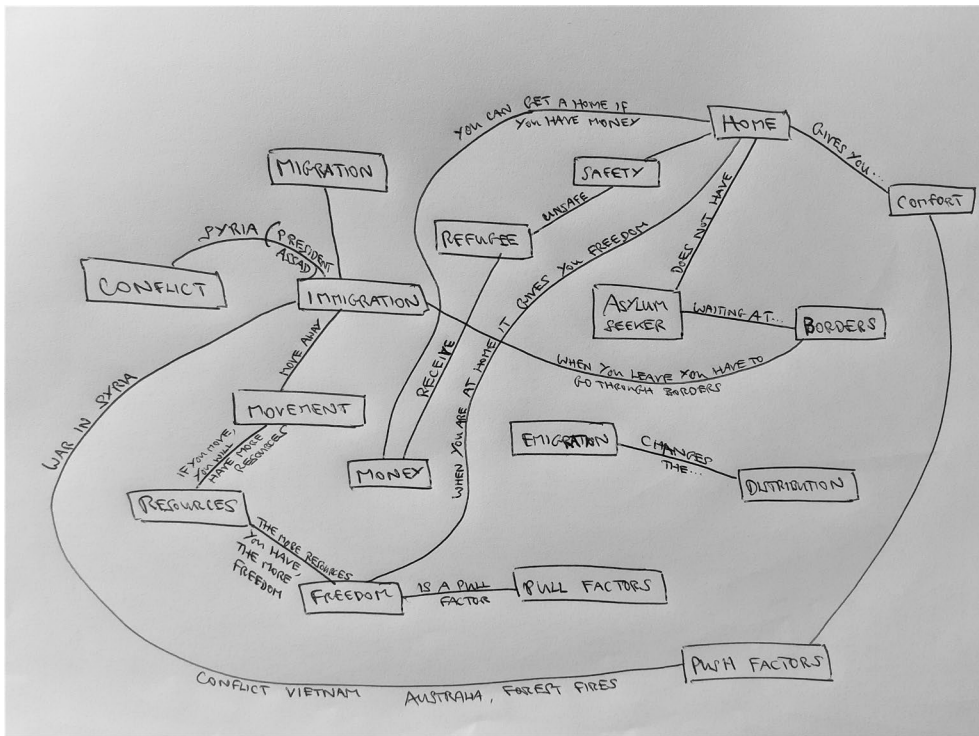 YOU CAN GET A HOME IF
YOU HAVE MONEY
HOME
GIVES YOU...
COMFORT
MIGRATION
SAFETY
UNSAFE
REFUGEE
DOES NOT HAVE
SYRIA (PRESIDENT
ASSAD)
CONFLICT
IMMIGRATION
ASYLUM
SEEKER
WAITING AT...
BORDERS
WHEN YOU LEAVE YOU HAVE TO
GO THROUGH BORDERS
MOVE AWAY
RECEIVE
WHEN YOU ARE AT HOME IT GIVES YOU FREEDOM
WAR IN SYRIA
MOVEMENT
IF YOU MOVE,
YOU WILL
HAVE MORE
RESOURCES
MONEY
EMIGRATION
CHANGES
THE...
DISTRIBUTION
RESOURCES
THE MORE RESOURCES
YOU HAVE,
THE MORE
FREEDOM
FREEDOM
IS A PULL
FACTOR
PULL FACTORS
PUSH FACTORS
CONFLICT VIETNAM AUSTRALIA, FOREST FIRES